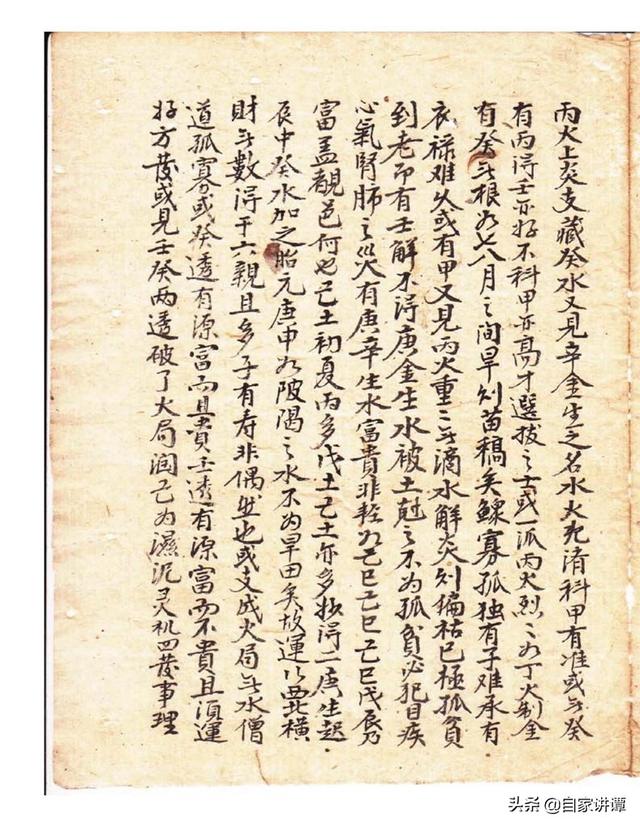 丙火上炎支藏癸水又見辛金生之名水火既濟科甲有准或无癸
有丙得壬亦好不科甲亦高才選拔之士或一派丙火烈〻如丁火制金
有癸无根如七八月之间旱则苗稿矣鰥寡孤独有子难承有
衣禄难久或有甲又見丙火重〻无滴水解炎则偏枯已極孤貧
到老即有壬解不得庚金生水被土尅之不为孤貧必犯目疾
心氣腎肺之災有庚辛生水富貴非轻如己巳己巳己巳戊辰乃
富盖靚邑何也己土初夏丙多戊土己土亦多妙得二庚生起
辰中癸水加之胎元庚申如陂隅之水不为旱田矣故運以西北橫
財无數得于六親且多子有寿非偶然也或支成火局无水僧
道孤寡或癸透有源富而且貴壬透有源富而不貴且須運
好方發或見壬癸两透破了火局润己为濕泥灵机四發事理
头条 @自家讲谭